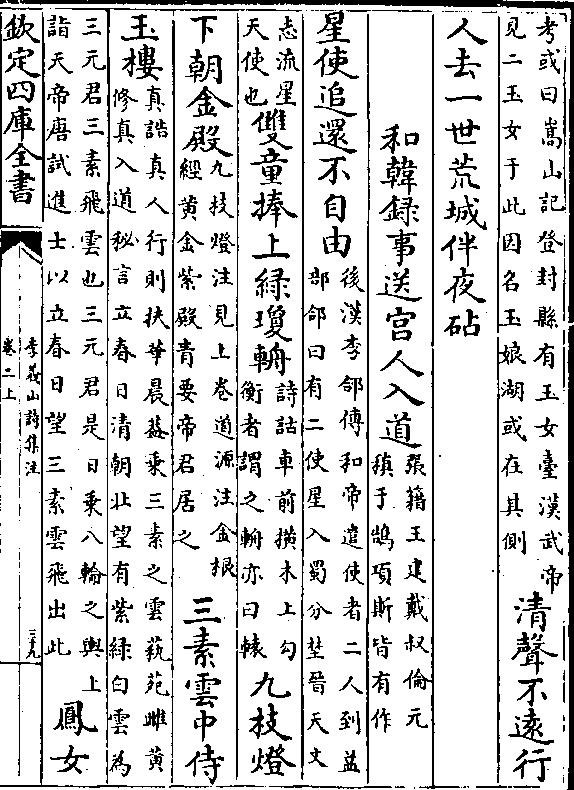 考或曰嵩山記登封縣有玉女臺漢武帝
見二玉女于此因名玉娘湖或在其側
清聲不遠行
人去一世荒城伴夜砧
和韓録事送宫人入道
張籍王建戴叔倫元
稹于鵠項斯皆有作
星使追還不自由
後漢李郃傳和帝遣使者二人到益
部郃曰有二使星入蜀分埜晉天文
志流星
天使也
雙童捧上緑瓊輈
詩詁車前橫木上勾
衡者謂之輈亦曰轅
九枝燈
下朝金殿
九枝燈注見上卷道源注金根
經黄金紫殿青要帝君居之
三素雲中侍
玉樓
真誥真人行則扶華晨葢乘三素之雲蓺苑雌黄
修真入道秘言立春日清朝北望有紫緑白雲為
三元君三素飛雲也三元君是日乘八輪之輿上
詣天帝唐試進士以立春日望三素雲飛出此
鳳女
欽定四庫全書
李義山詩集注
卷二上
三九